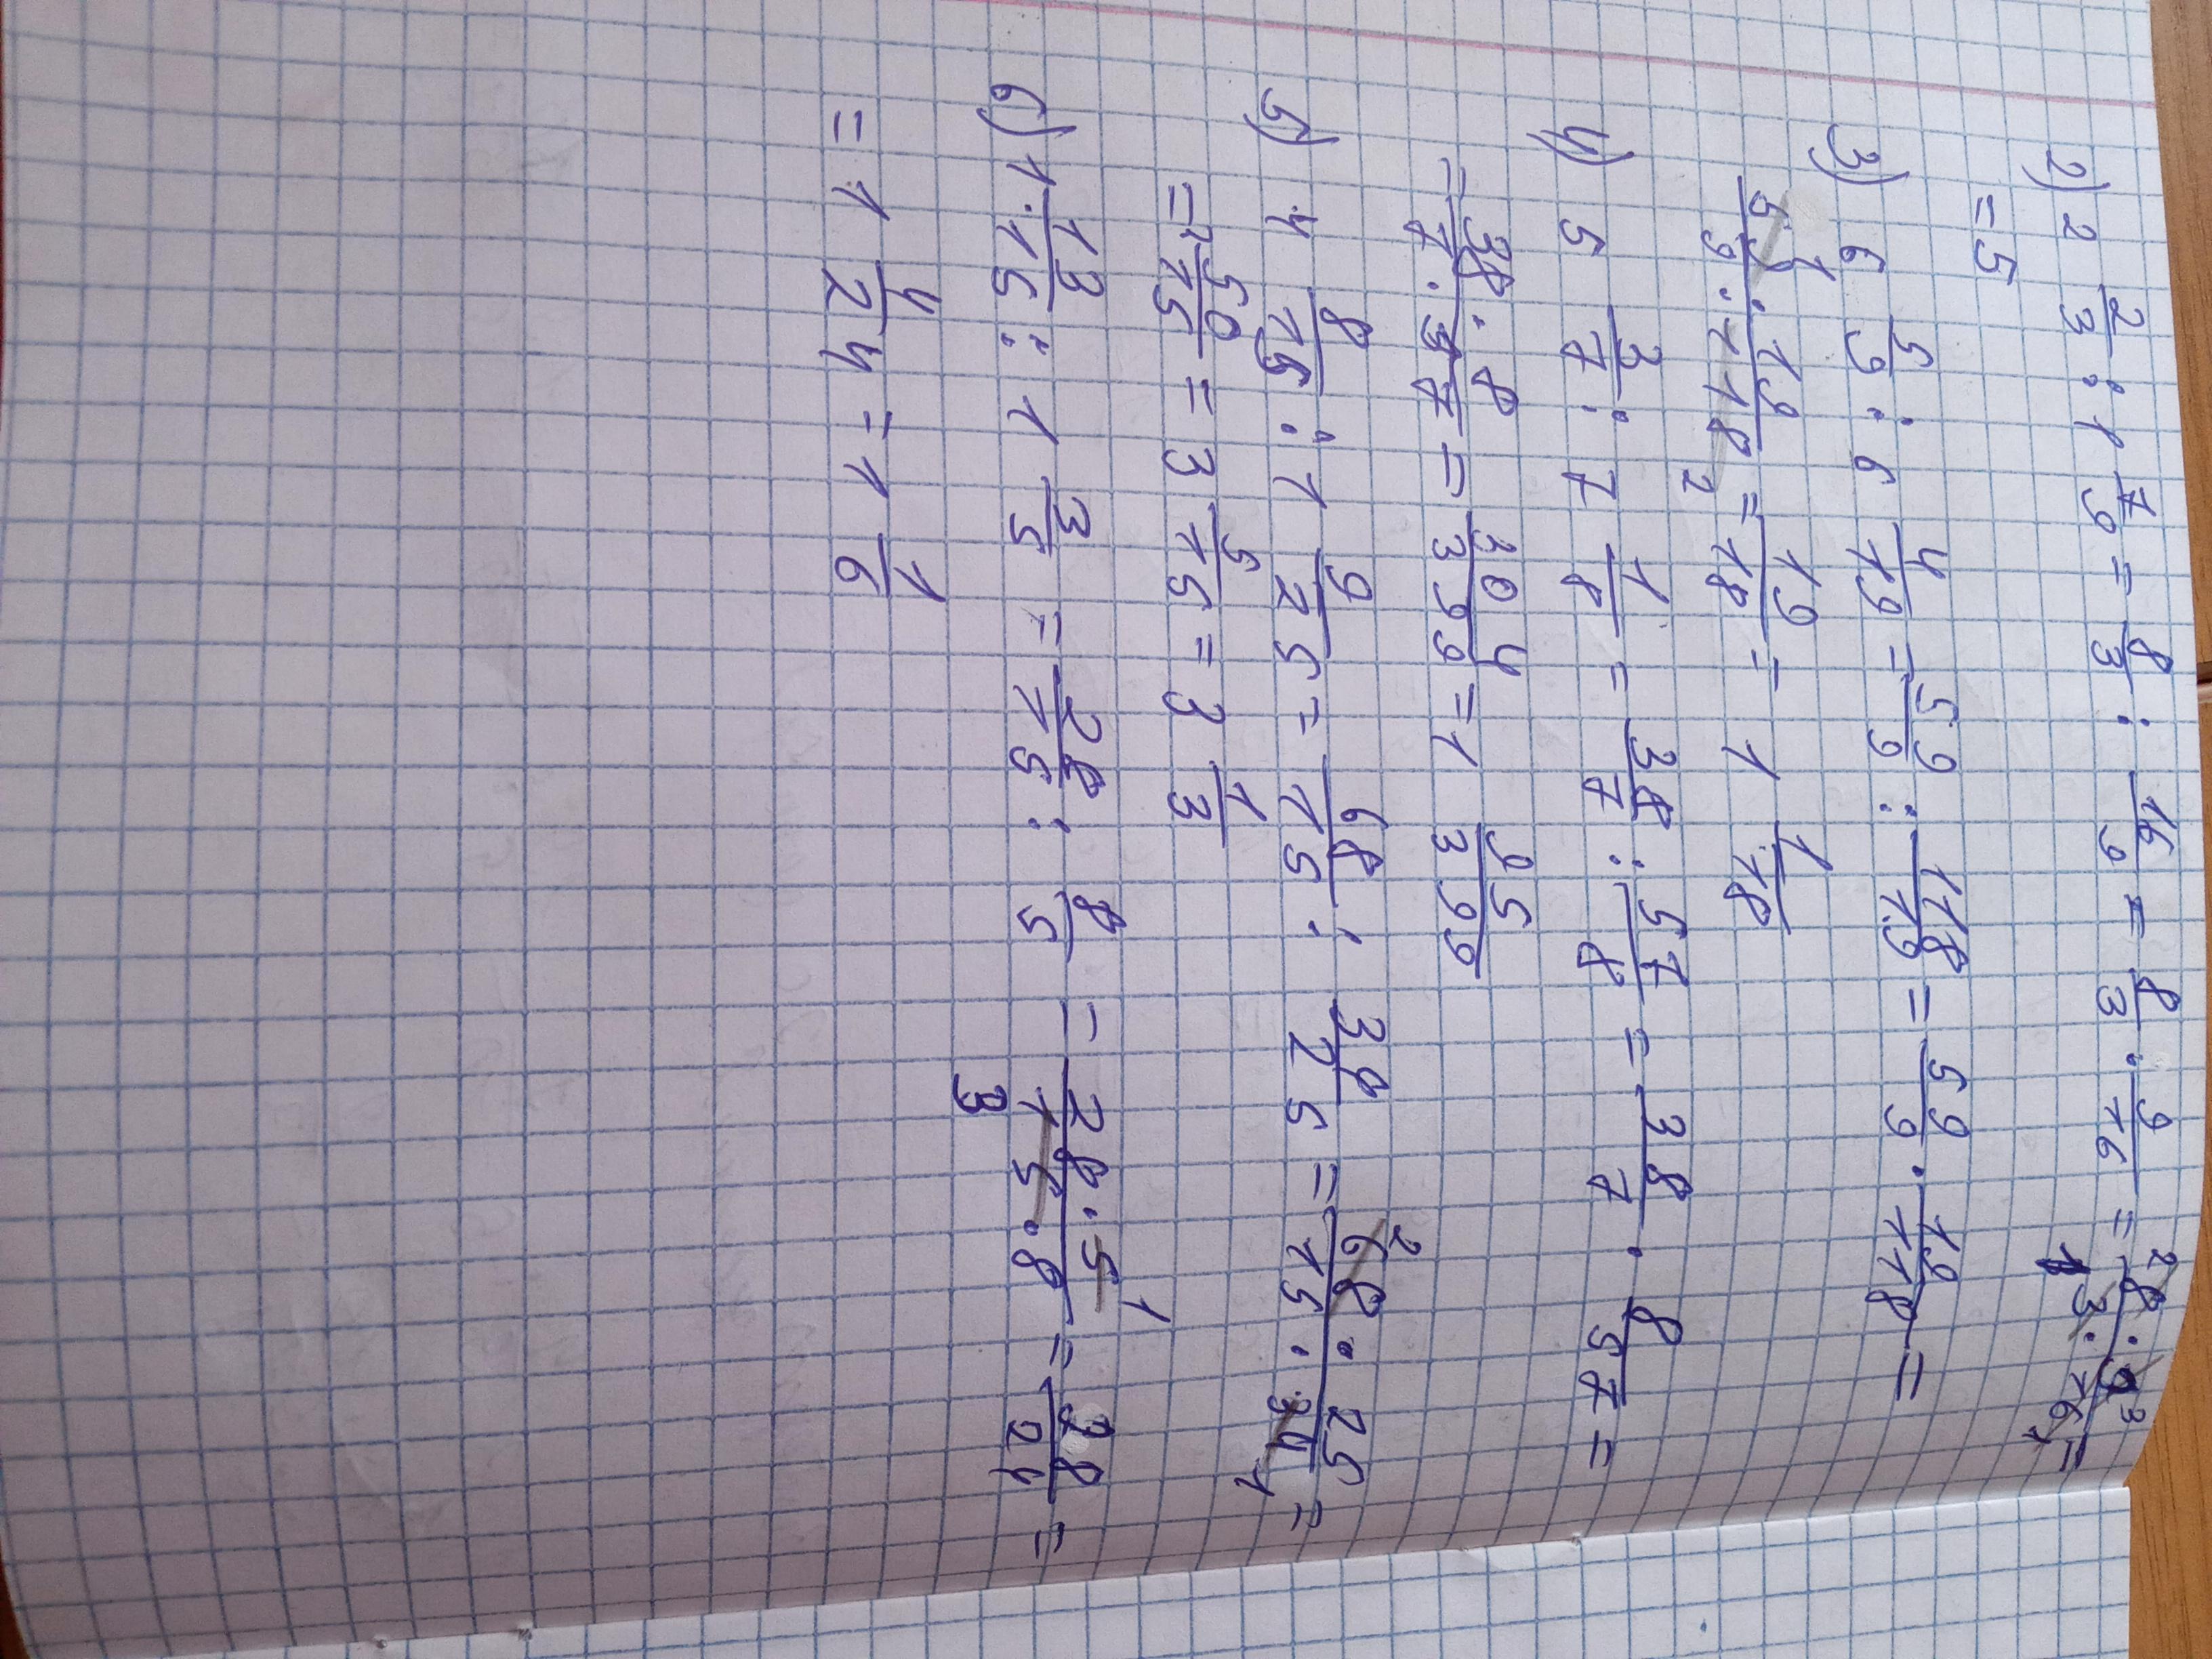 2) 2 2/3 : 1 7/9 = 8/3 : 16/9 = 8/3 · 9/16 = 2 8 · 9 3 / 1 3 · 16 1 =
= 5
3) 6 5/9 : 6 4/19 = 59/9 : 118/19 = 59/9 · 19/118 =
59 1 · 19 / 9 · 118 2 = 19/18 = 1 1/18
4) 5 3/7 : 7 1/8 = 38/7 : 57/8 = 38/7 · 8/57 =
= 38 · 8 / 7 · 57 = 304/399 = 1 95/399
5) 4 8/15 : 1 9/25 = 68/15 : 34/25 = 2 68 · 25 / 15 · 34 1 =
= 50/15 = 3 5/15 = 3 1/3
6) 1 13/15 : 1 3/5 = 28/15 : 8/5 = 28 · 5 1 / 3 15 · 8 = 28/24 =
= 1 4/24 = 1 1/6